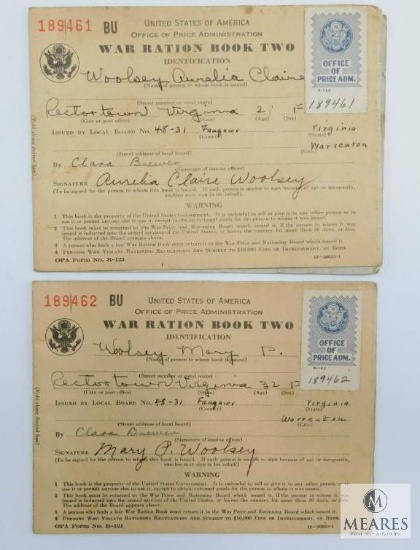 189461 BU UNITED STATES OF AMERICA
OFFICE OF PRICE ADMINISTRATION
WAR RATION BOOK TWO
IDENTIFICATION
OFFICE OF PRICE ADM.
189461
Woolsey Aurelia Claire
(Name of person to whom book is issued)
(Street number or rural route)
Rectortown Virginia 2 F
(City or post office) (State) (Age) (Sex)
ISSUED BY LOCAL BOARD No. 48-31 Fauquier Virginia
Warrenton
(Street address of local board)
By Clara
(Signature of issuing officer)
SIGNATURE Aurelia Claire Woolsey
(To be signed by the person to whom this book is issued. If such person is unable to sign because of age or incapacity, another may sign in his behalf)
WARNING
1 This book is the property of the United States Government. It is unlawful to sell or give it to any other person or to use it or permit anyone else to use it, except to obtain rationed goods for the person to whom it was issued.
2 This book must be returned to the War Price and Rationing Board which issued it, if the person to whom it was issued is inducted into the armed services of the United States, or leaves the country for more than 30 days, or dies. The address of the Board appears above.
3 A person who finds a lost War Ration Book must return it to the War Price and Rationing Board which issued it.
4 PERSONS WHO VIOLATE RATIONING REGULATIONS ARE SUBJECT TO $10,000 FINE OR IMPRISONMENT, OR BOTH.
OPA FORM No. R-121
189462 BU UNITED STATES OF AMERICA
OFFICE OF PRICE ADMINISTRATION
WAR RATION BOOK TWO
IDENTIFICATION
OFFICE OF PRICE ADM.
189462
Woolsey Mary P.
(Name of person to whom book is issued)
(Street number or rural route)
Rectortown Virginia 32 F
(City or post office) (State) (Age) (Sex)
ISSUED BY LOCAL BOARD No. 48-31 Fauquier Virginia
Warrenton
(Street address of local board)
By Clara
(Signature of issuing officer)
SIGNATURE Mary P. Woolsey
(To be signed by the person to whom this book is issued. If such person is unable to sign because of age or incapacity, another may sign in his behalf)
WARNING
1 This book is the property of the United States Government. It is unlawful to sell or give it to any other person or to use it or permit anyone else to use it, except to obtain rationed goods for the person to whom it was issued.
2 This book must be returned to the War Price and Rationing Board which issued it, if the person to whom it was issued is inducted into the armed services of the United States, or leaves the country for more than 30 days, or dies. The address of the Board appears above.
3 A person who finds a lost War Ration Book must return it to the War Price and Rationing Board which issued it.
4 PERSONS WHO VIOLATE RATIONING REGULATIONS ARE SUBJECT TO $10,000 FINE OR IMPRISONMENT, OR BOTH.
OPA FORM No. R-121
M
MEARES